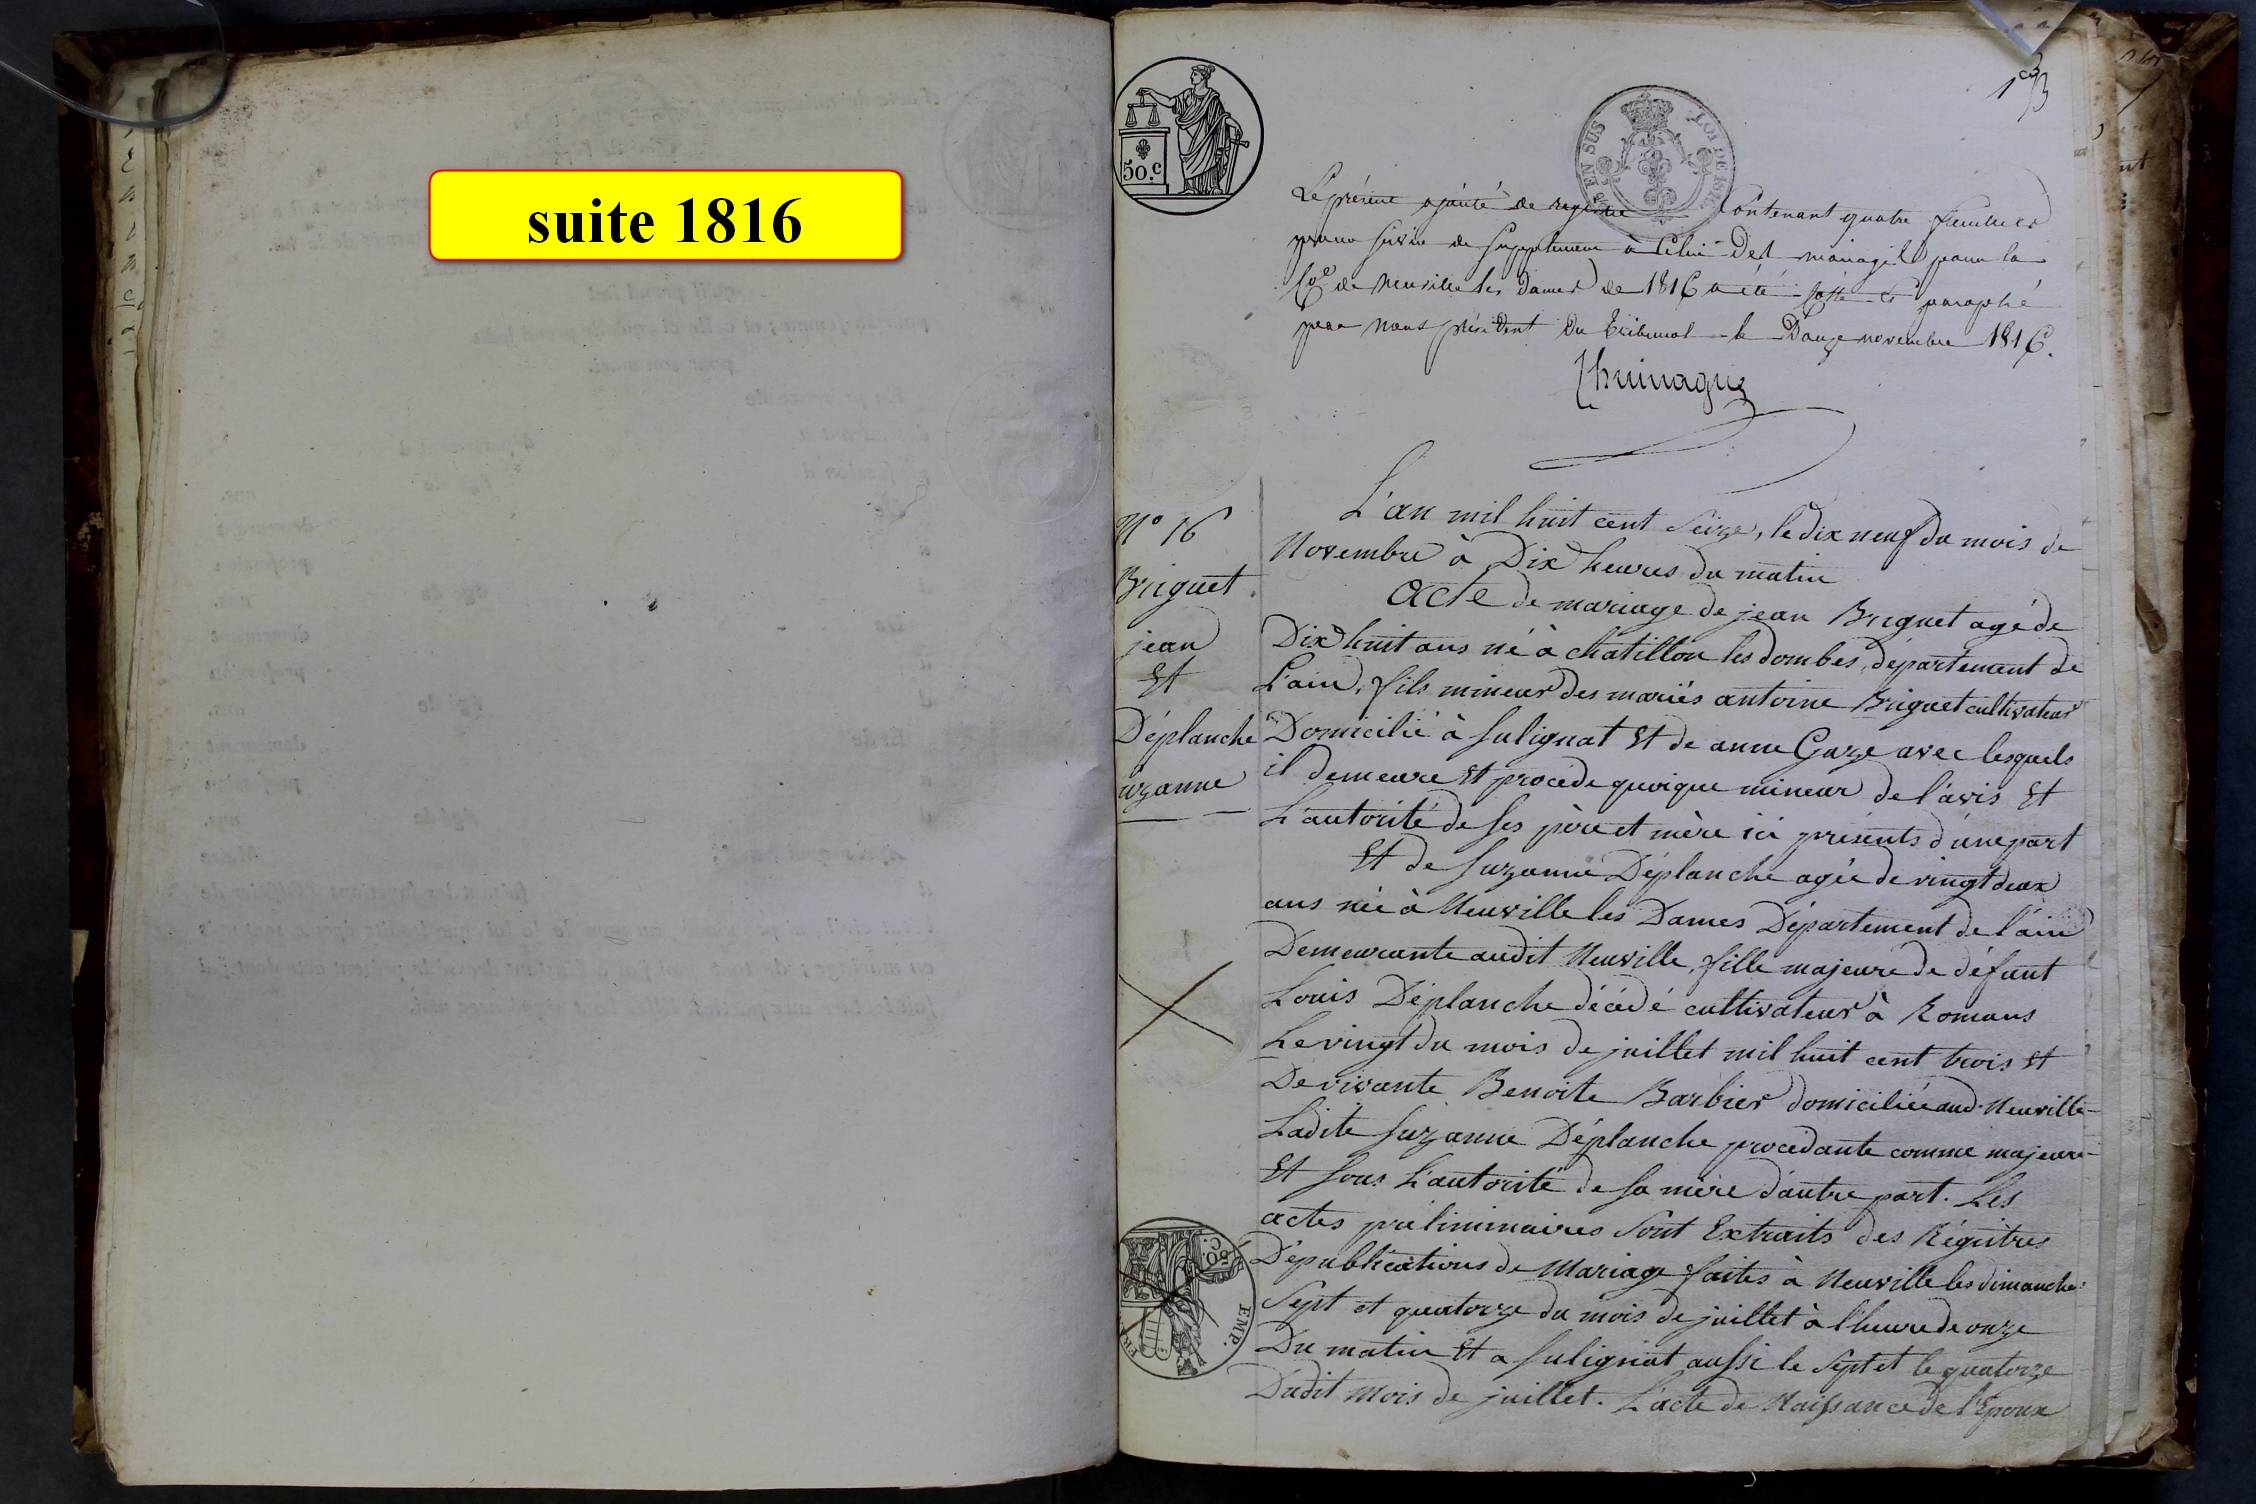 suite 1816
50.c
EN SUS
LOI DE 1816
Le présent ajouté de registre Contenant quatre feuilles
pour servir de Supplément à Celui Des mariages pour la
Co.e de Neuville les Dames de 1816 a été Cotté et paraphé
par Nous président Du Tribunal le Douze novembre 1816.
L'an mil huit cent Seize, le dix neuf du mois de
Novembre à Dix heures du matin
Acte de mariage de jean Briguet agé de
Dix huit ans né à chatillon les dombes, département de
L'ain, fils mineur des mariés antoine Briguet cultivateur
Domicilié à Sulignat Et de anne Gaze avec lesquels
il demeure Et procède quoique mineur de l'avis Et
L'autorité de ses père et mère ici présents d'une part
Et de Suzanne Déplanche agée de vingt deux
ans née à Neuville les Dames Département de l'ain
Demeurante audit Neuville, fille majeure de défunt
Louis Déplanche décédé cultivateur à Romans
Le vingt du mois de juillet mil huit cent trois Et
De vivante Benoite Barbier domiciliée aud. Neuville
Ladite Suzanne Déplanche procédante comme majeure
Et sous L'autorité de sa mère d'autre part. Les
actes préliminaires Sont Extraits des Régitres
De publications de Mariage faites à Neuville les dimanches
Sept et quatorze du mois de juillet à l'heure de onze
Du matin Et a Sulignat aussi le Sept et le quatorze
Dudit mois de juillet. L'acte de Naissance de l'Epoux
N° 16
Briguet
jean
Et
Déplanche
uzanne
50. C.
EMP.